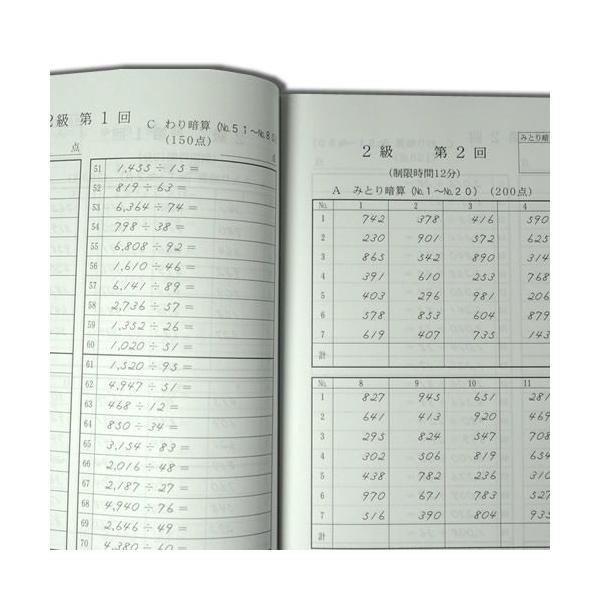 2級 第1回 C わり暗算 (№51～№80)
(150点)
点
点
51 1,455÷15=
52 819÷63=
53 6,364÷74=
54 798÷38=
55 6,808÷92=
56 1,610÷46=
57 6,141÷89=
58 2,736÷57=
59 1,352÷26=
60 1,020÷51=
61 1,520÷95=
62 4,947÷51=
63 468÷12=
64 850÷34=
65 3,154÷83=
66 2,016÷48=
67 2,187÷27=
68 4,940÷76=
69 2,646÷49=
70 4,380÷60=
みとり暗
2級 第2回
(制限時間12分)
A みとり暗算 (№1～№20) (200点)
№ 1 2 3 4
1 742 378 416 590
2 230 901 572 625
3 865 542 890 314
4 391 610 253 768
5 403 296 981 206
6 578 853 604 879
7 619 407 735 143
計
№ 8 9 10 11
1 827 945 651 281
2 641 413 920 469
3 295 824 547 708
4 302 506 819 654
5 438 782 236 310
6 970 671 783 527
7 516 390 804 935
計